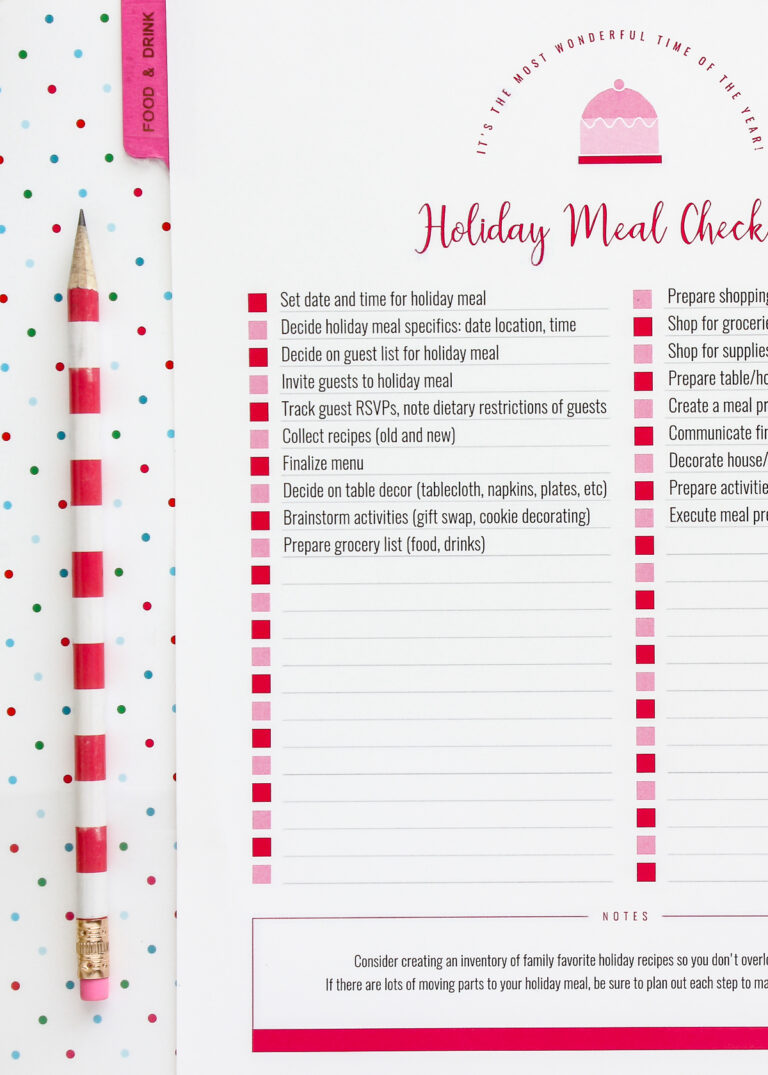 FOOD & DRINK
IT'S THE MOST WONDERFUL TIME OF THE YEAR!
Holiday Meal Check
Set date and time for holiday meal
Decide holiday meal specifics: date location, time
Decide on guest list for holiday meal
Invite guests to holiday meal
Track guest RSVPs, note dietary restrictions of guests
Collect recipes (old and new)
Finalize menu
Decide on table decor (tablecloth, napkins, plates, etc)
Brainstorm activities (gift swap, cookie decorating)
Prepare grocery list (food, drinks)
Prepare shopping
Shop for grocerie
Shop for supplies
Prepare table/ho
Create a meal pr
Communicate fin
Decorate house/
Prepare activitie
Execute meal pre
NOTES
Consider creating an inventory of family favorite holiday recipes so you don't overlo
If there are lots of moving parts to your holiday meal, be sure to plan out each step to ma